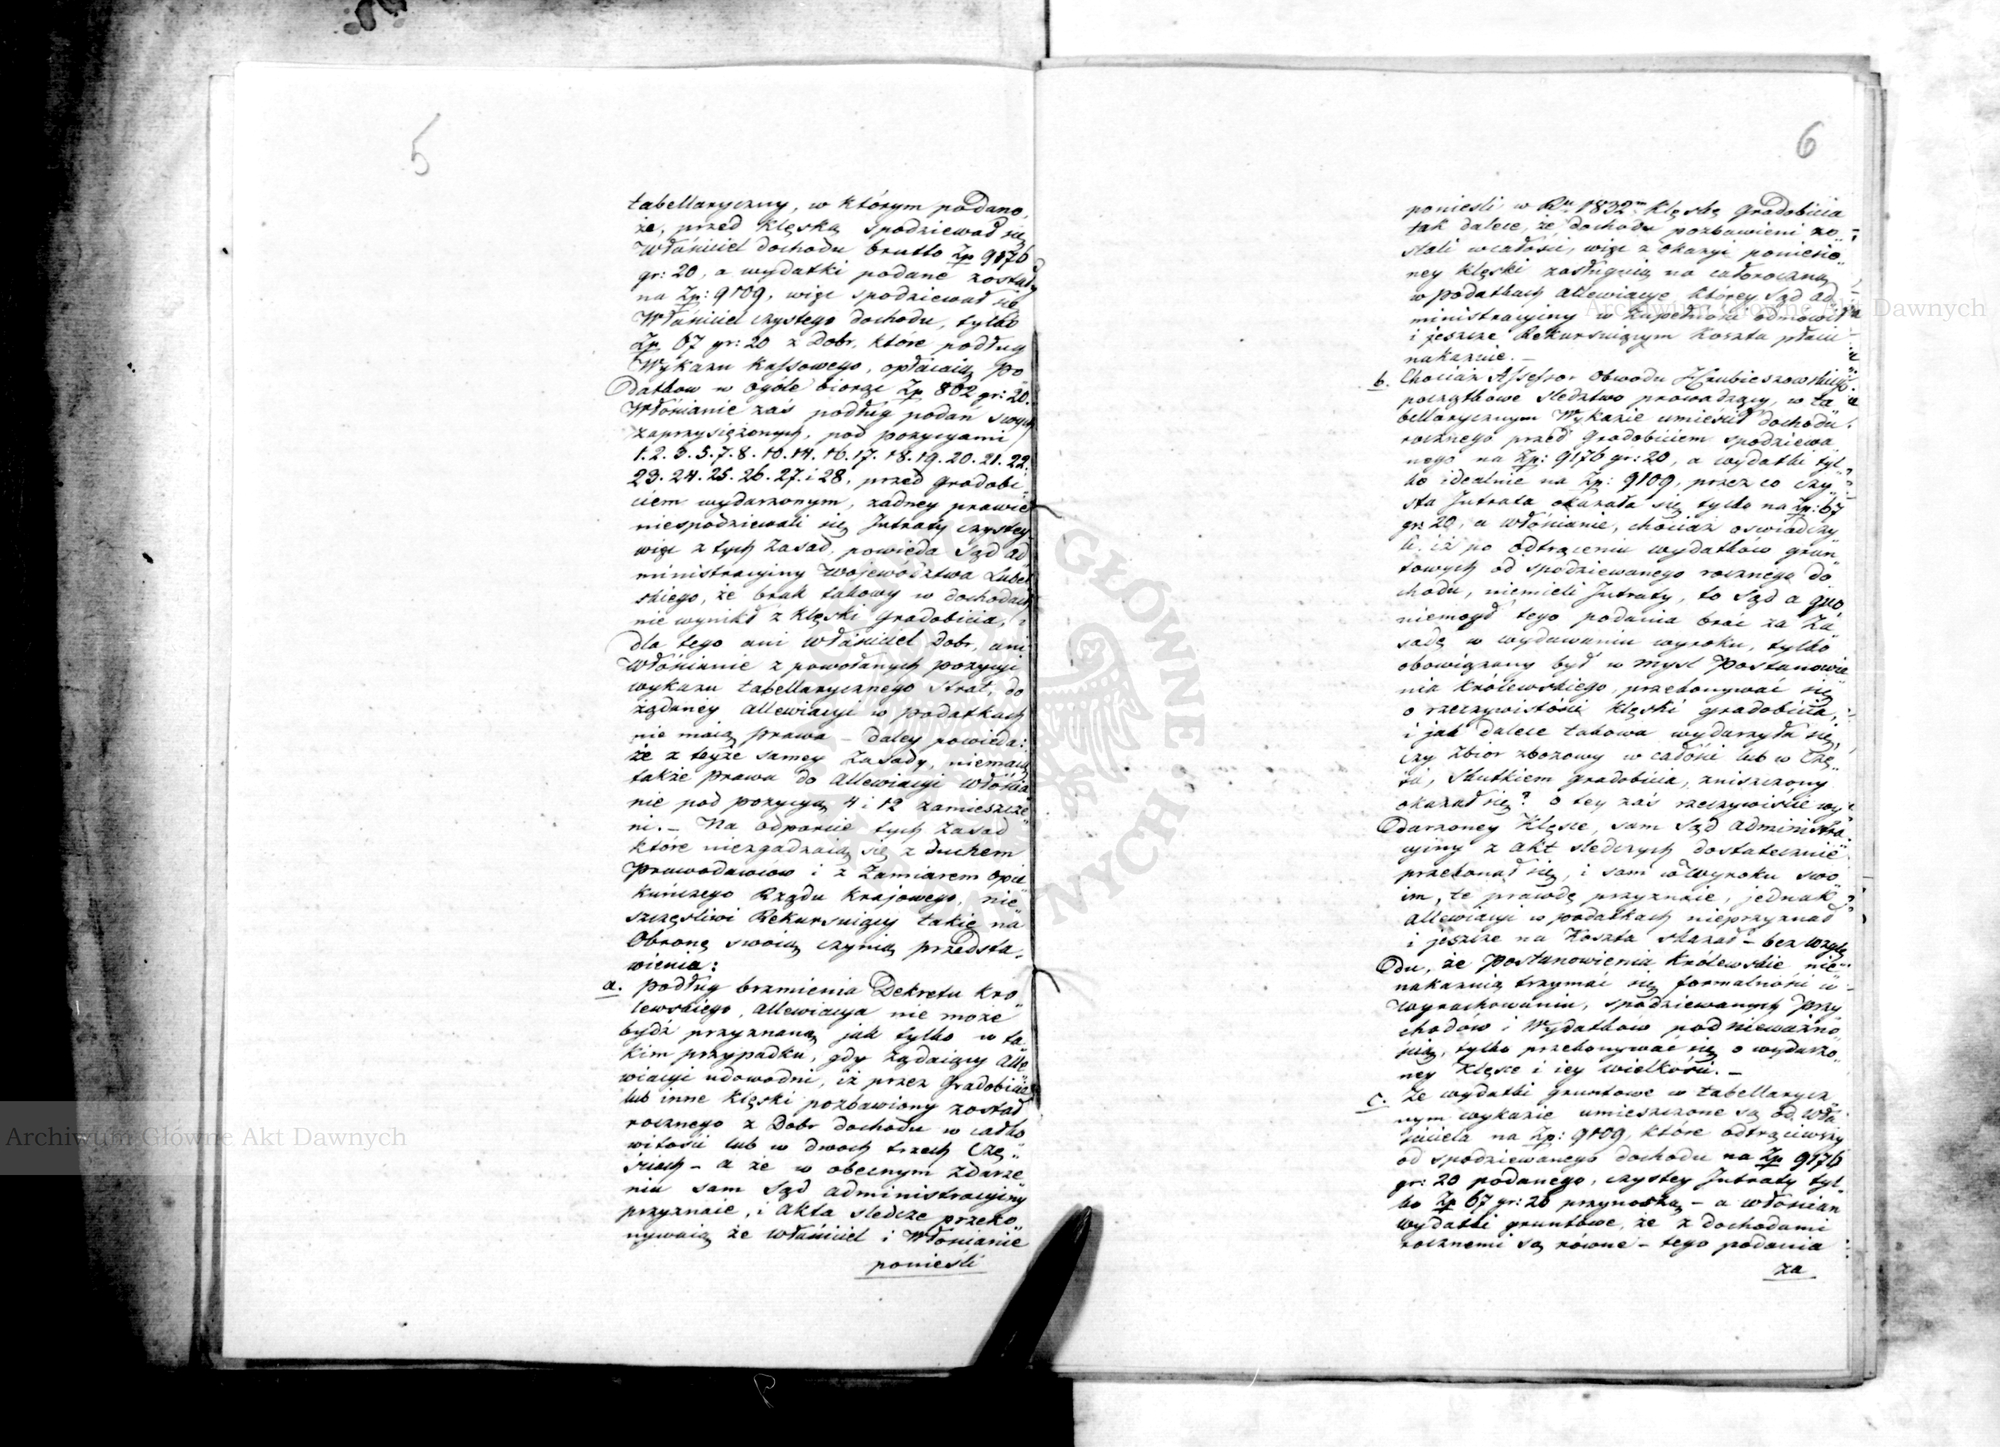 5
tabellaryczny, w którym podano,
że, przed klęską spodziewał się
Właściciel dochodu brutto Zp 9176
gr: 20, a wydatki podane zostały
na Zp: 9109, więc spodziewał się
Właściciel czystego dochodu, tylko
Zp 67 gr: 20 z Dobr, które podług
Wykazu Kassowego, opłacaią Po
datkow w ogóle biorąc Zp 802 gr: 20.
Włościanie zaś podług podań swych
zaprzysiężonych, pod pozycyami
1. 2. 3. 5. 7. 8. 10. 14. 16. 17. 18. 19. 20. 21. 22.
23. 24. 25. 26. 27. i 28, przed gradobi
ciem wydarzonym, żadney prawie
niespodziewali się Intraty czystey
więc z tych Zasad, powieda Sąd ad
ministracyiny Województwa Lubel
skiego, że brak takowy w dochodach
nie wynikł z klęski Gradobicia, i
dla tego ani Właściciel Dobr, ani
Włościanie z powołanych pozycyi
wykazu tabellarycznego strat, do
żądaney allewiacyi w podatkach
nie maią prawa – Daley powieda:
że z teyże samey Zasady, niemaią
także prawa do allewiacyi włościa
nie pod pozycyą 4 i 12 zamieszcze
ni. – Na odparcie tych Zasad
które niezgadzaią się z duchem
Prawodawców i z Zamiarem Opie
kuńczego Rządu Krajowego, nie
szczęśliwi Rekursuiący takie na
Obronę swoią czynią przedsta
wienia:
a. Podług brzmienia Dekretu Kro
lewskiego, allewiacya nie może
bydź przyznaną jak tylko w ta
kim przypadku, gdy żądaiący Alle
wiacyi udowodni, iż przez Gradobicie
lub inne klęski pozbawiony został
rocznego z Dobr dochodu w cało
witości lub w dwoch trzech Czę
ściach – a że w obecnym zdarze
niu sam Sąd administracyiny
przyznaie, i Akta śledcze przeko
nywaią że Właściciel i Włościanie
ponieśli
6
ponieśli w Ru 1832m klęskę Gradobicia
tak dalece, że dochodu pozbawieni zo
stali w całości, więc z okazyi poniesio
ney klęski zasługuią na całoroczną
w podatkach allewiacyę której Sąd ad
ministracyiny w zupełności odmówił
i jeszcze Rekursuiącym Koszta płacić
nakazuie. –
b. Chociaż Assessor Obwodu Hrubieszowskiego
początkowe śledztwo prowadzący, w ta
bellarycznym Wykazie umieścił dochodu
rocznego przed Gradobiciem spodziewa
nego na Zp: 9176 gr: 20, a wydatki tyl
ko idealnie na Zp: 9109, przez co czy
sta Intrata okazała się tylko na Zp: 67
gr: 20, a włościanie, chociaż oświadczy
li, iż po odtrąceniu wydatków grun
towych od spodziewanego rocznego do
chodu, niemieli Intraty, to Sąd a quo
niemógł tego podania brać za Za
sadę w wydawaniu wyroku, tylko
obowiązany był w myśl Postanowie
nia Królewskiego, przekonywać się
o rzeczywistości klęski gradobicia,
i jak dalece takowa wydarzyła się,
czy zbior zbożowy w całości lub w Czę
ści, skutkiem gradobicia, zniszczony
okazał się? o tey zaś rzeczywiście wy
darzoney Klęsce, sam Sąd administra
cyiny z akt śledczych dostatecznie
przekonał się, i sam w Wyroku swo
im, te prawdę przyznaie, jednak
allewiacyi w podatkach nieprzyznał
i jeszcze na Koszta skazał – bez wzglę
du, że Postanowienia Królewskie nie
nakazuią trzymać się formalności w
wyrachowaniu, spodziewanych Przy
chodów i Wydatków pod nieważno
ścią, tylko przekonywać się o wydarzo
ney Klęsce i iey wielkości. –
c. Że wydatki gruntowe w tabellarycz
nym wykazie umieszczone są od Wła
ściciela na Zp: 9109, które odtrąciwszy
od spodziewanego dochodu na Zp 9176
gr: 20 podanego, czystey Intraty tyl
ko Zp 67 gr: 20 przynoszą – a włościan
wydatki gruntowe, że z dochodami
rocznemi są równe – tego podania
za
Archiwum Główne Akt Dawnych
Archiwum Główne Akt Dawnych